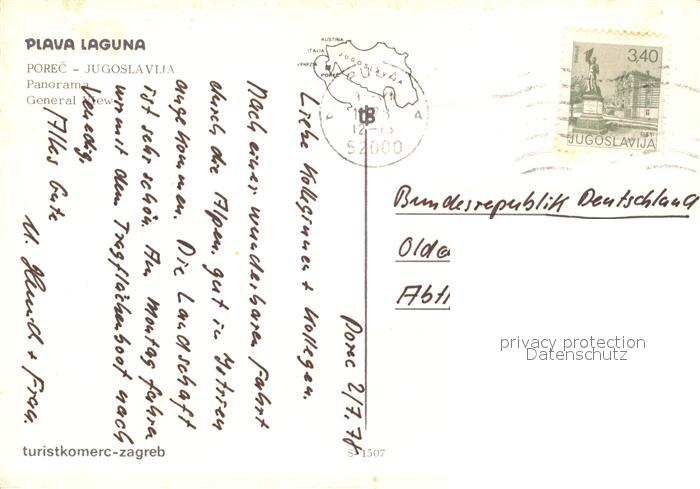 PLAVA LAGUNA
POREČ – JUGOSLAVIJA
Panorama
General View
AUSTRIA
ITALIA
VENEZIA
POREČ
JUGOSLAVIJA
52000
3,40
JUGOSLAVIJA
Porec 2/7.78
Liebe Kolleginnen + Kollegen.
Nach einer wunderbaren Fahrt
durch die Alpen, gut in Istrien
angekommen. Die Landschaft
ist sehr schön. Am Montag fahren
wir mit dem Tragflächenboot nach
Venedig.
Alles Gute
U. & Frau.
Bundesrepublik Deutschland
Olde
Abt
privacy protection
Datenschutz
turistkomerc-zagreb
S-1507